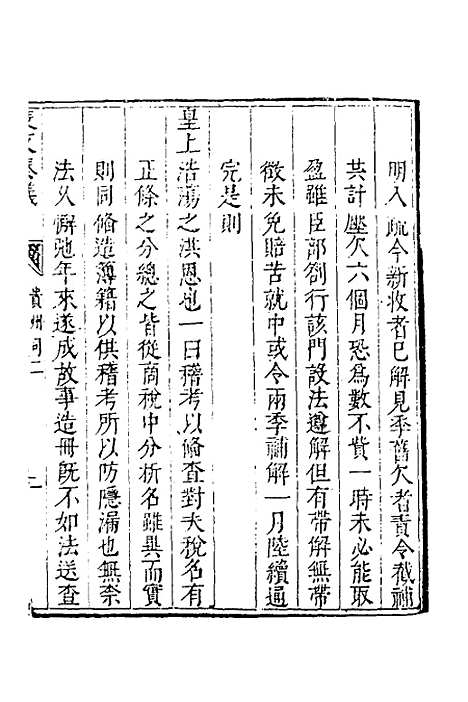 明入疏今新收者已解見季舊欠者責令截補
共計歷欠六個月恐為數不貲一時未必能取
盈雖臣部劄行該門設法遵解但有帶解無帶
徵未免賠苦就中或令兩季補解一月陸續通
完是則
皇上浩蕩之洪恩也一曰稽考以俻查對夫稅名有
正條之分總之皆從商稅中分析名雖異而實
則同俻造簿籍以供稽考所以防隱漏也無柰
法久懈弛年來遂成故事造冊旣不如法送查
貴州司二